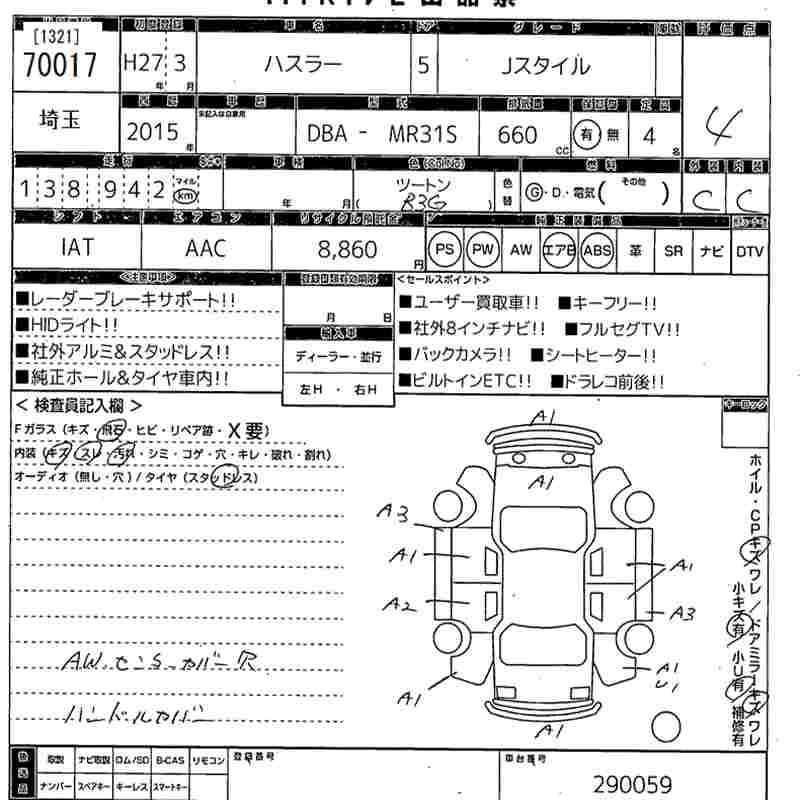 [1321]
70017
初度登録 車名 ドア グレード 評価点
H27 3 ハスラー 5 Jスタイル 4
年 月
埼玉
車歴 型式 排気量 車検有 定員
未記入は自家用
2015 年 DBA - MR31S 660 CC 有 無 4 名
走行 車検 色(COLOR) 燃料 外装 内装
138942 マイル km 年 月 ( ツートン B3G ) 色替 G・D・電気( その他 ) C C
シフト エアコン リサイクル預託金
IAT AAC 8,860 円 PS PW AW エアB ABS 革 SR ナビ DTV
<注意事項> <セールスポイント>
■レーダーブレーキサポート!!
■HIDライト!!
■社外アルミ&スタッドレス!!
■純正ホール&タイヤ車内!!
月 日
輸入車
ディーラー・並行
左H ・ 右H
■ユーザー買取車!! ■キーフリー!!
■社外8インチナビ!! ■フルセグTV!!
■バックカメラ!! ■シートヒーター!!
■ビルトインETC!! ■ドラレコ前後!!
< 検査員記入欄 >
Fガラス (キズ・飛石・ヒビ・リペア跡・X要)
内装 (キズ・スレ・汚れ・シミ・コゲ・穴・キレ・破れ・割れ)
オーディオ (無し・穴) / タイヤ (スタッドレス)
AW.センS-カバー欠
ハンドルカバー
A1
A1
A3
A1
A1
A2
A3
A1
A1
U1
A1
ホイル・CPキズワレ/ドアミラーキズワレ
小キズ有 小U有 補修有
取説 ナビ取説 ロム/SD B-CAS リモコン 登録番号 車台番号
ナンバー スペアキー キーレス スマートキー
290059